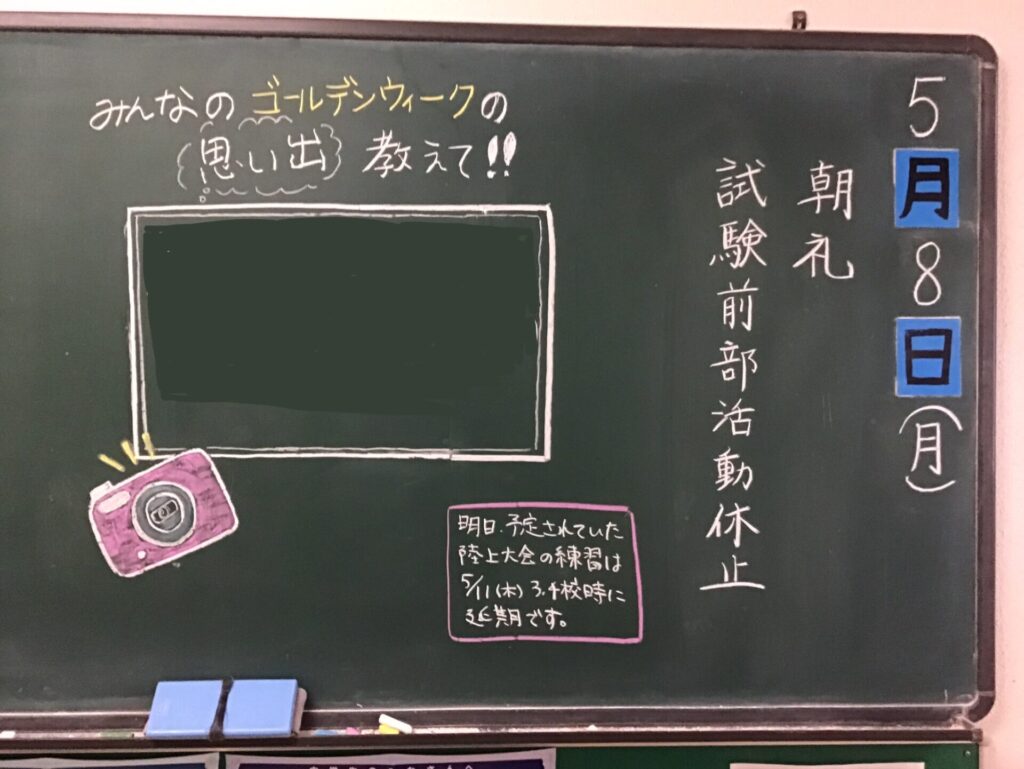 5月8日(月)
朝礼
試験前部活動休止
みんなのゴールデンウィークの
思い出 教えて!!
明日、予定されていた
陸上大会の練習は
5/11(木) 3,4校時に
延期です。